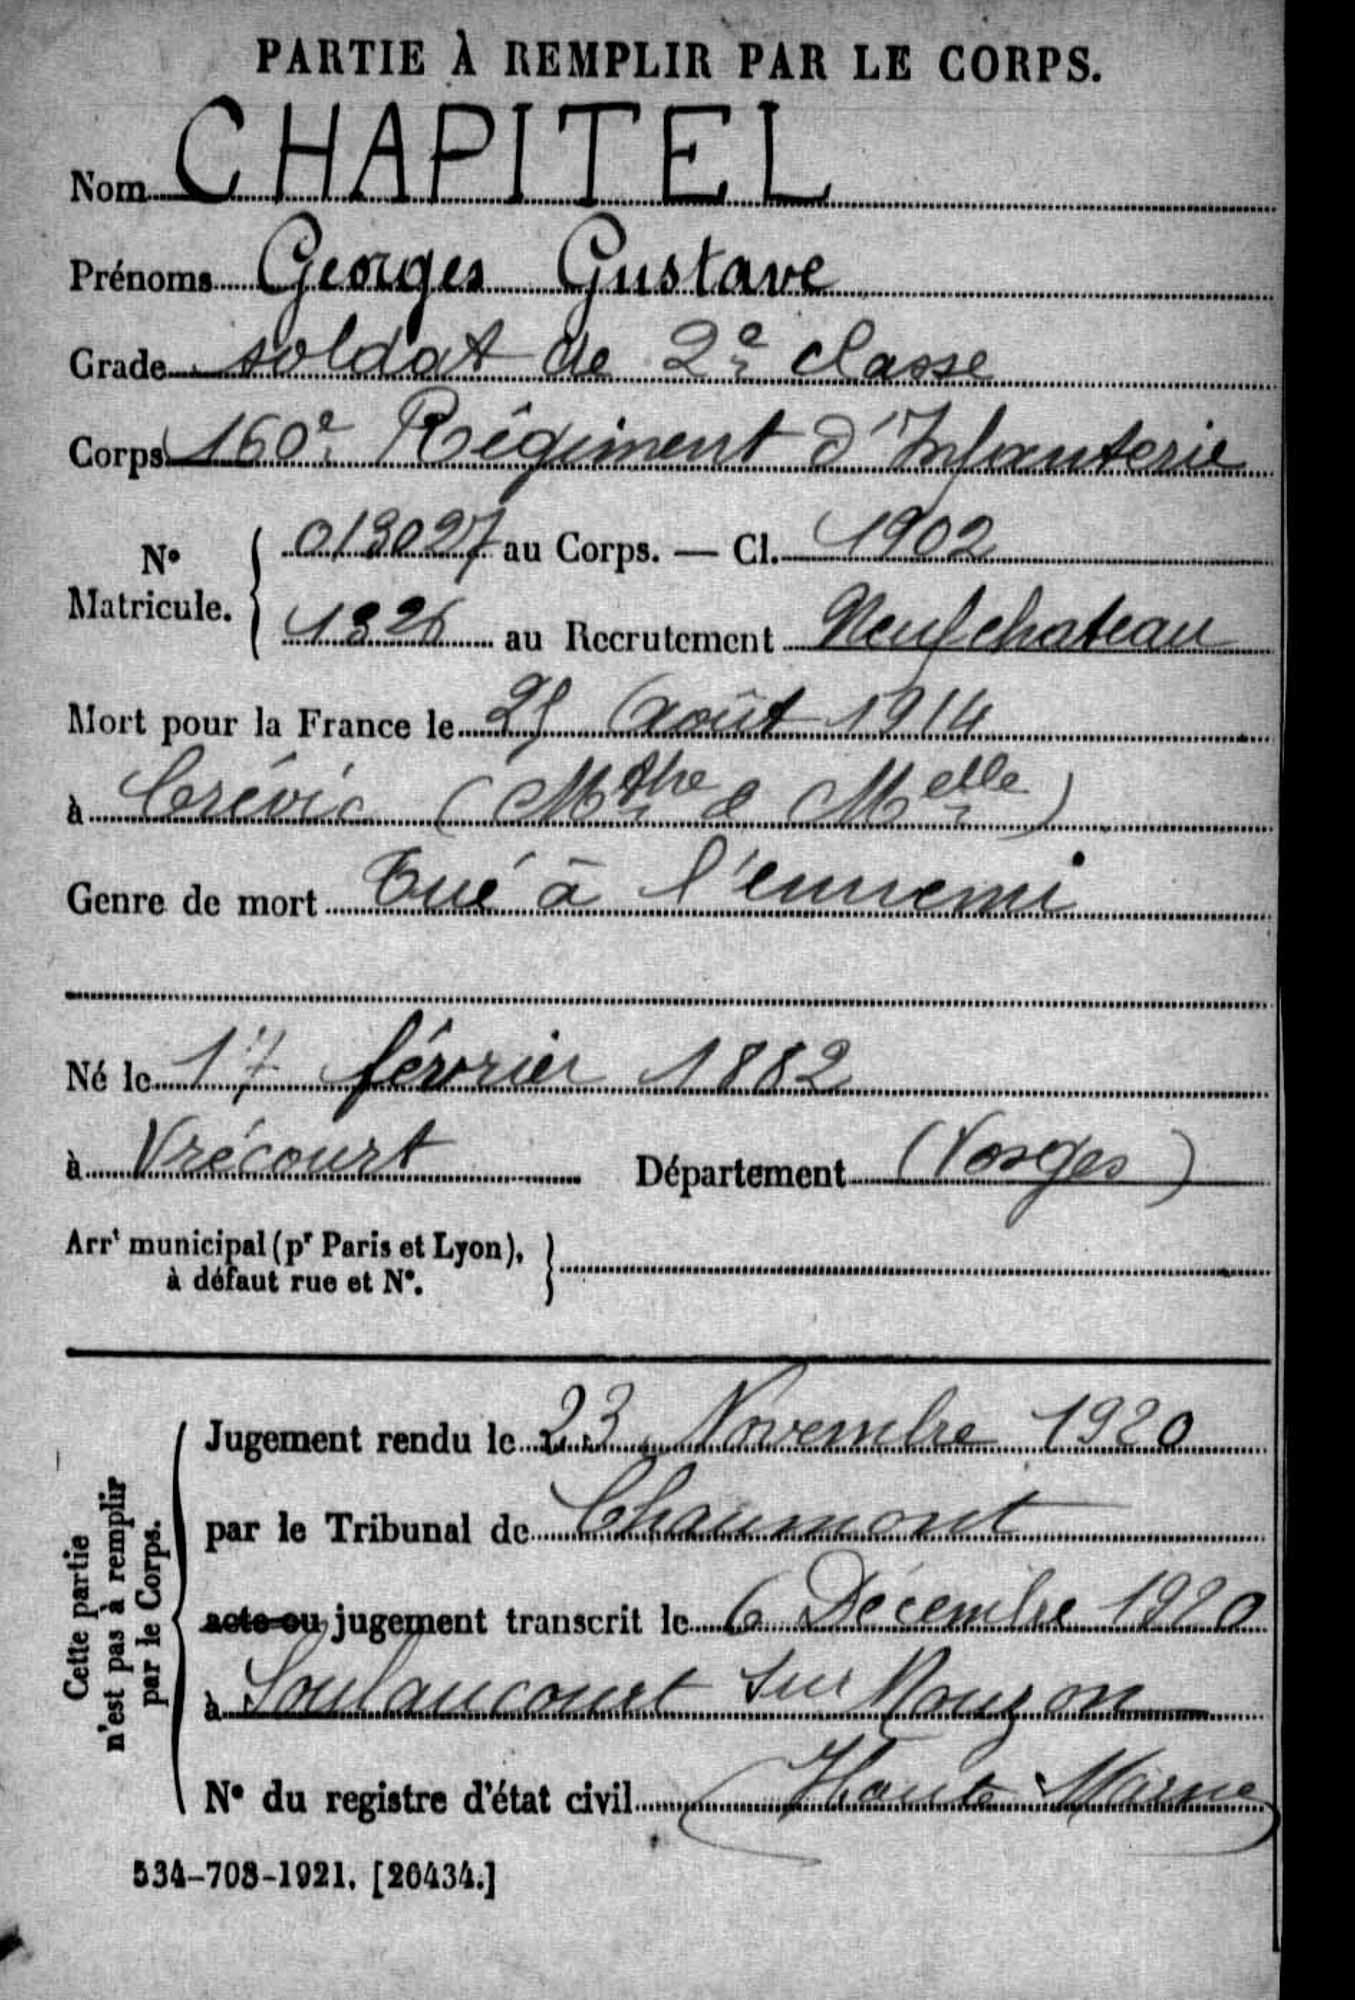 PARTIE À REMPLIR PAR LE CORPS.
Nom CHAPITEL
Prénoms Georges Gustave
Grade soldat de 2e classe
Corps 160e Régiment d'Infanterie
No Matricule. { 013027 au Corps. — Cl. 1902
1326 au Recrutement Neufchateau
Mort pour la France le 25 Août 1914
à Crévic (Mthe & Melle)
Genre de mort Tué à l'ennemi
Né le 17 février 1882
à Vrécourt Département (Vosges)
Arrt municipal (pr Paris et Lyon),
à défaut rue et No.
Cette partie
n'est pas à remplir
par le Corps.
Jugement rendu le 23 Novembre 1920
par le Tribunal de Chaumont
acte ou jugement transcrit le 6 Décembre 1920
à Soulaucourt sur Mouzon
No du registre d'état civil (Haute Marne)
534-708-1921. [26434.]